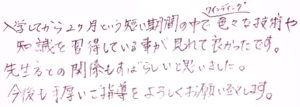 ワインディング
入学してから2ヶ月という短い期間の中で色々な技術や
知識を習得している事が見れて良かったです。
先生方との関係もすばらしいと思いました。
今後も手厚いご指導をよろしくお願い致します。